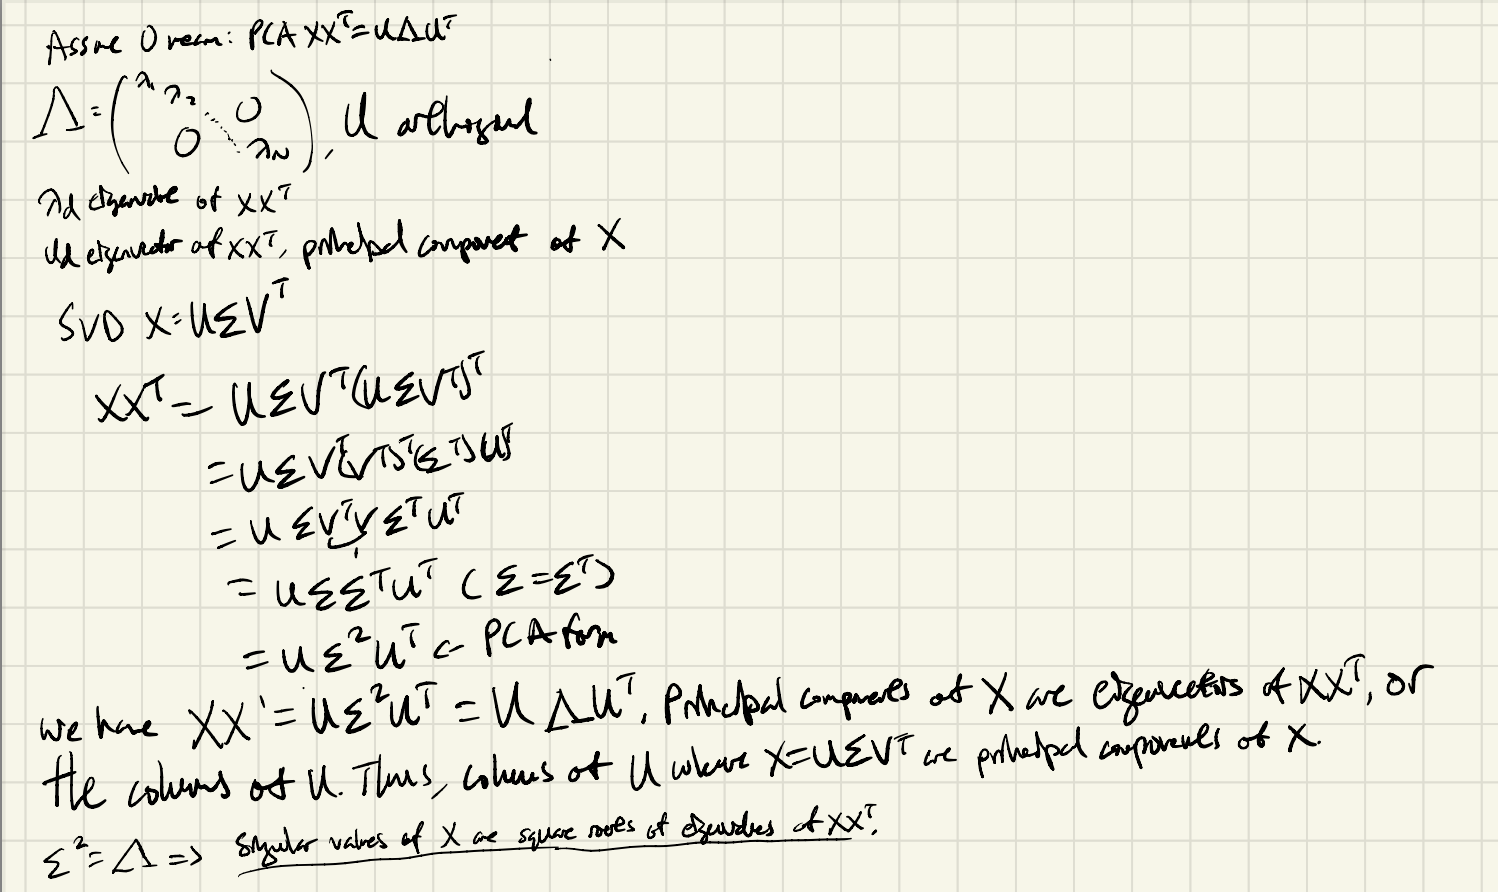 Assume 0 mean: PCA XXᵀ = UΛUᵀ
Λ = (λ₁ λ₂ ⋱ λN, 0 0), U orthogonal
λd eigenvalue of XXᵀ
Ud eigenvector of XXᵀ, principal component of X
SVD X = UΣVᵀ
XXᵀ = UΣVᵀ(UΣVᵀ)ᵀ
= UΣVᵀ(Vᵀ)ᵀ(Σᵀ)Uᵀ
= UΣVᵀVΣᵀUᵀ
= UΣΣᵀUᵀ (Σ = Σᵀ)
= UΣ²Uᵀ ← PCA form
we have XX' = UΣ²Uᵀ = UΛUᵀ. Principal components of X are eigenvectors of XXᵀ, or
the columns of U. Thus, columns of U where X = UΣVᵀ are principal components of X.
Σ² = Λ => Singular values of X are square roots of eigenvalues of XXᵀ.